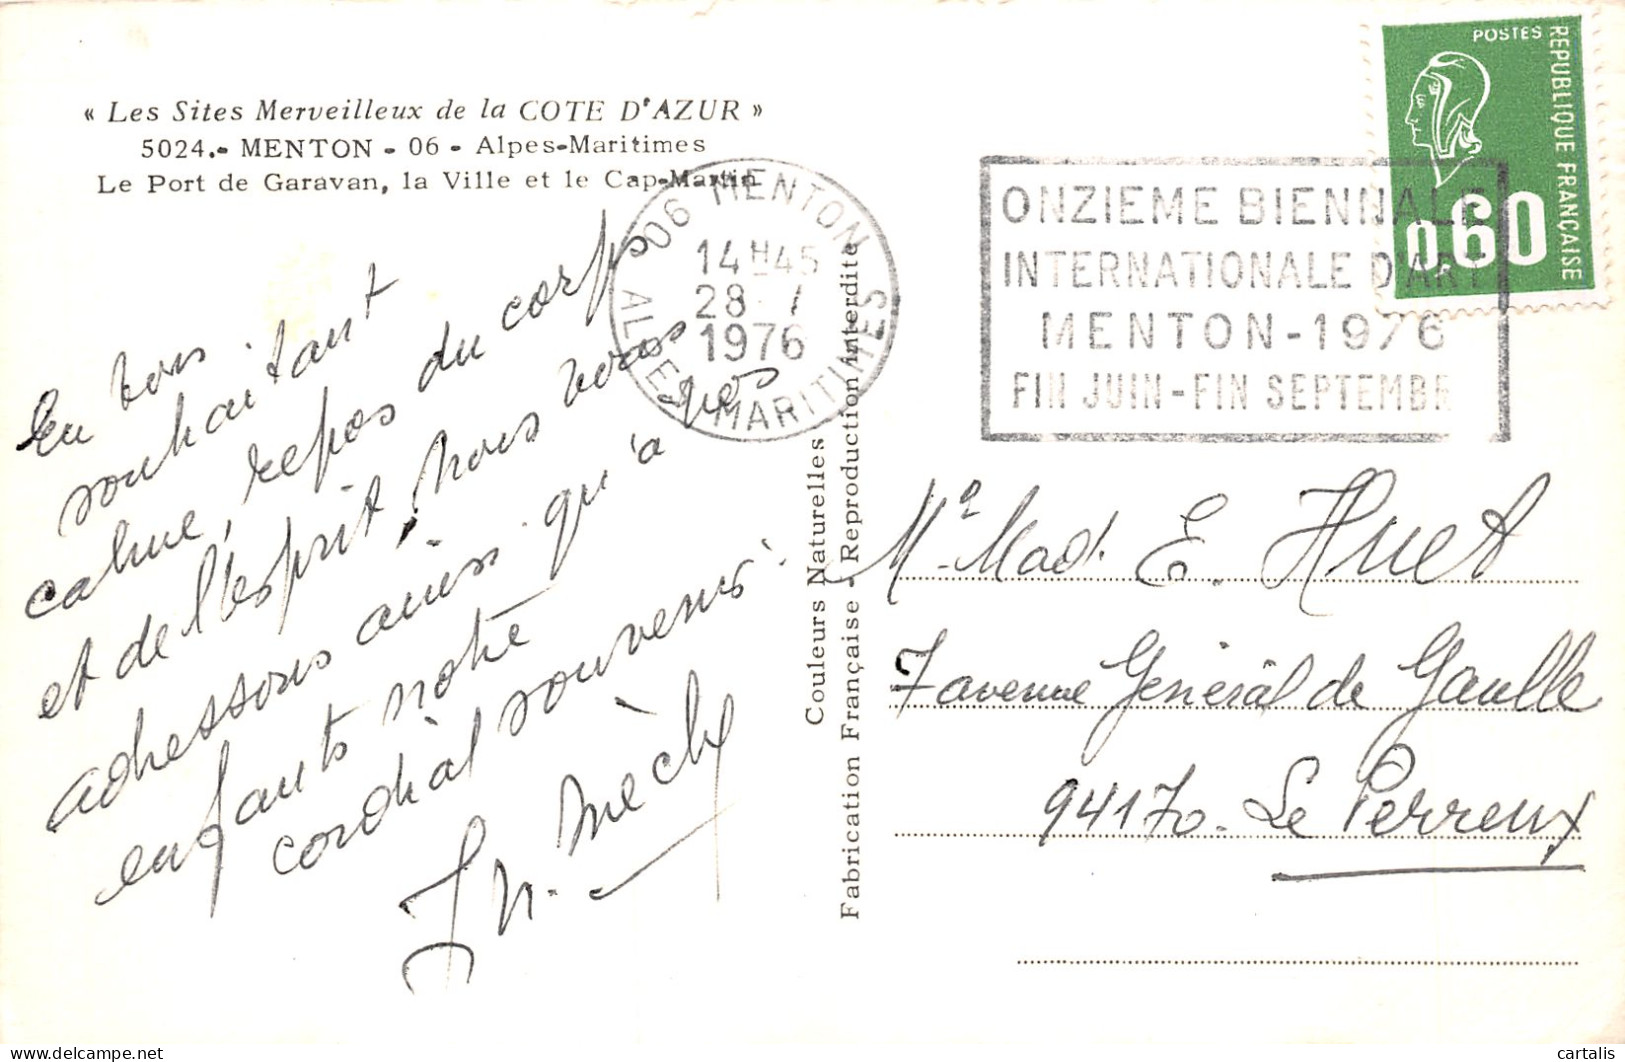 « Les Sites Merveilleux de la COTE D'AZUR »
5024.- MENTON - 06 - Alpes-Maritimes
Le Port de Garavan, la Ville et le Cap-Martin
06 MENTON
14H45
28 - 1
1976
ALPES MARITIMES
ONZIEME BIENNALE
INTERNATIONALE D'ART
MENTON - 1976
FIN JUIN - FIN SEPTEMBR
POSTES
REPUBLIQUE FRANÇAISE
0.60
En vous
souhaitant
calme, repos du corps
et de l'esprit, nous vous
adressons ainsi qu'à vos
enfants notre
cordial souvenir.
Couleurs Naturelles
Fabrication Française - Reproduction interdite
Mad. E. Huet
7 avenue Général de Gaulle
94170 - Le Perreux
cartalis
delcampe.net